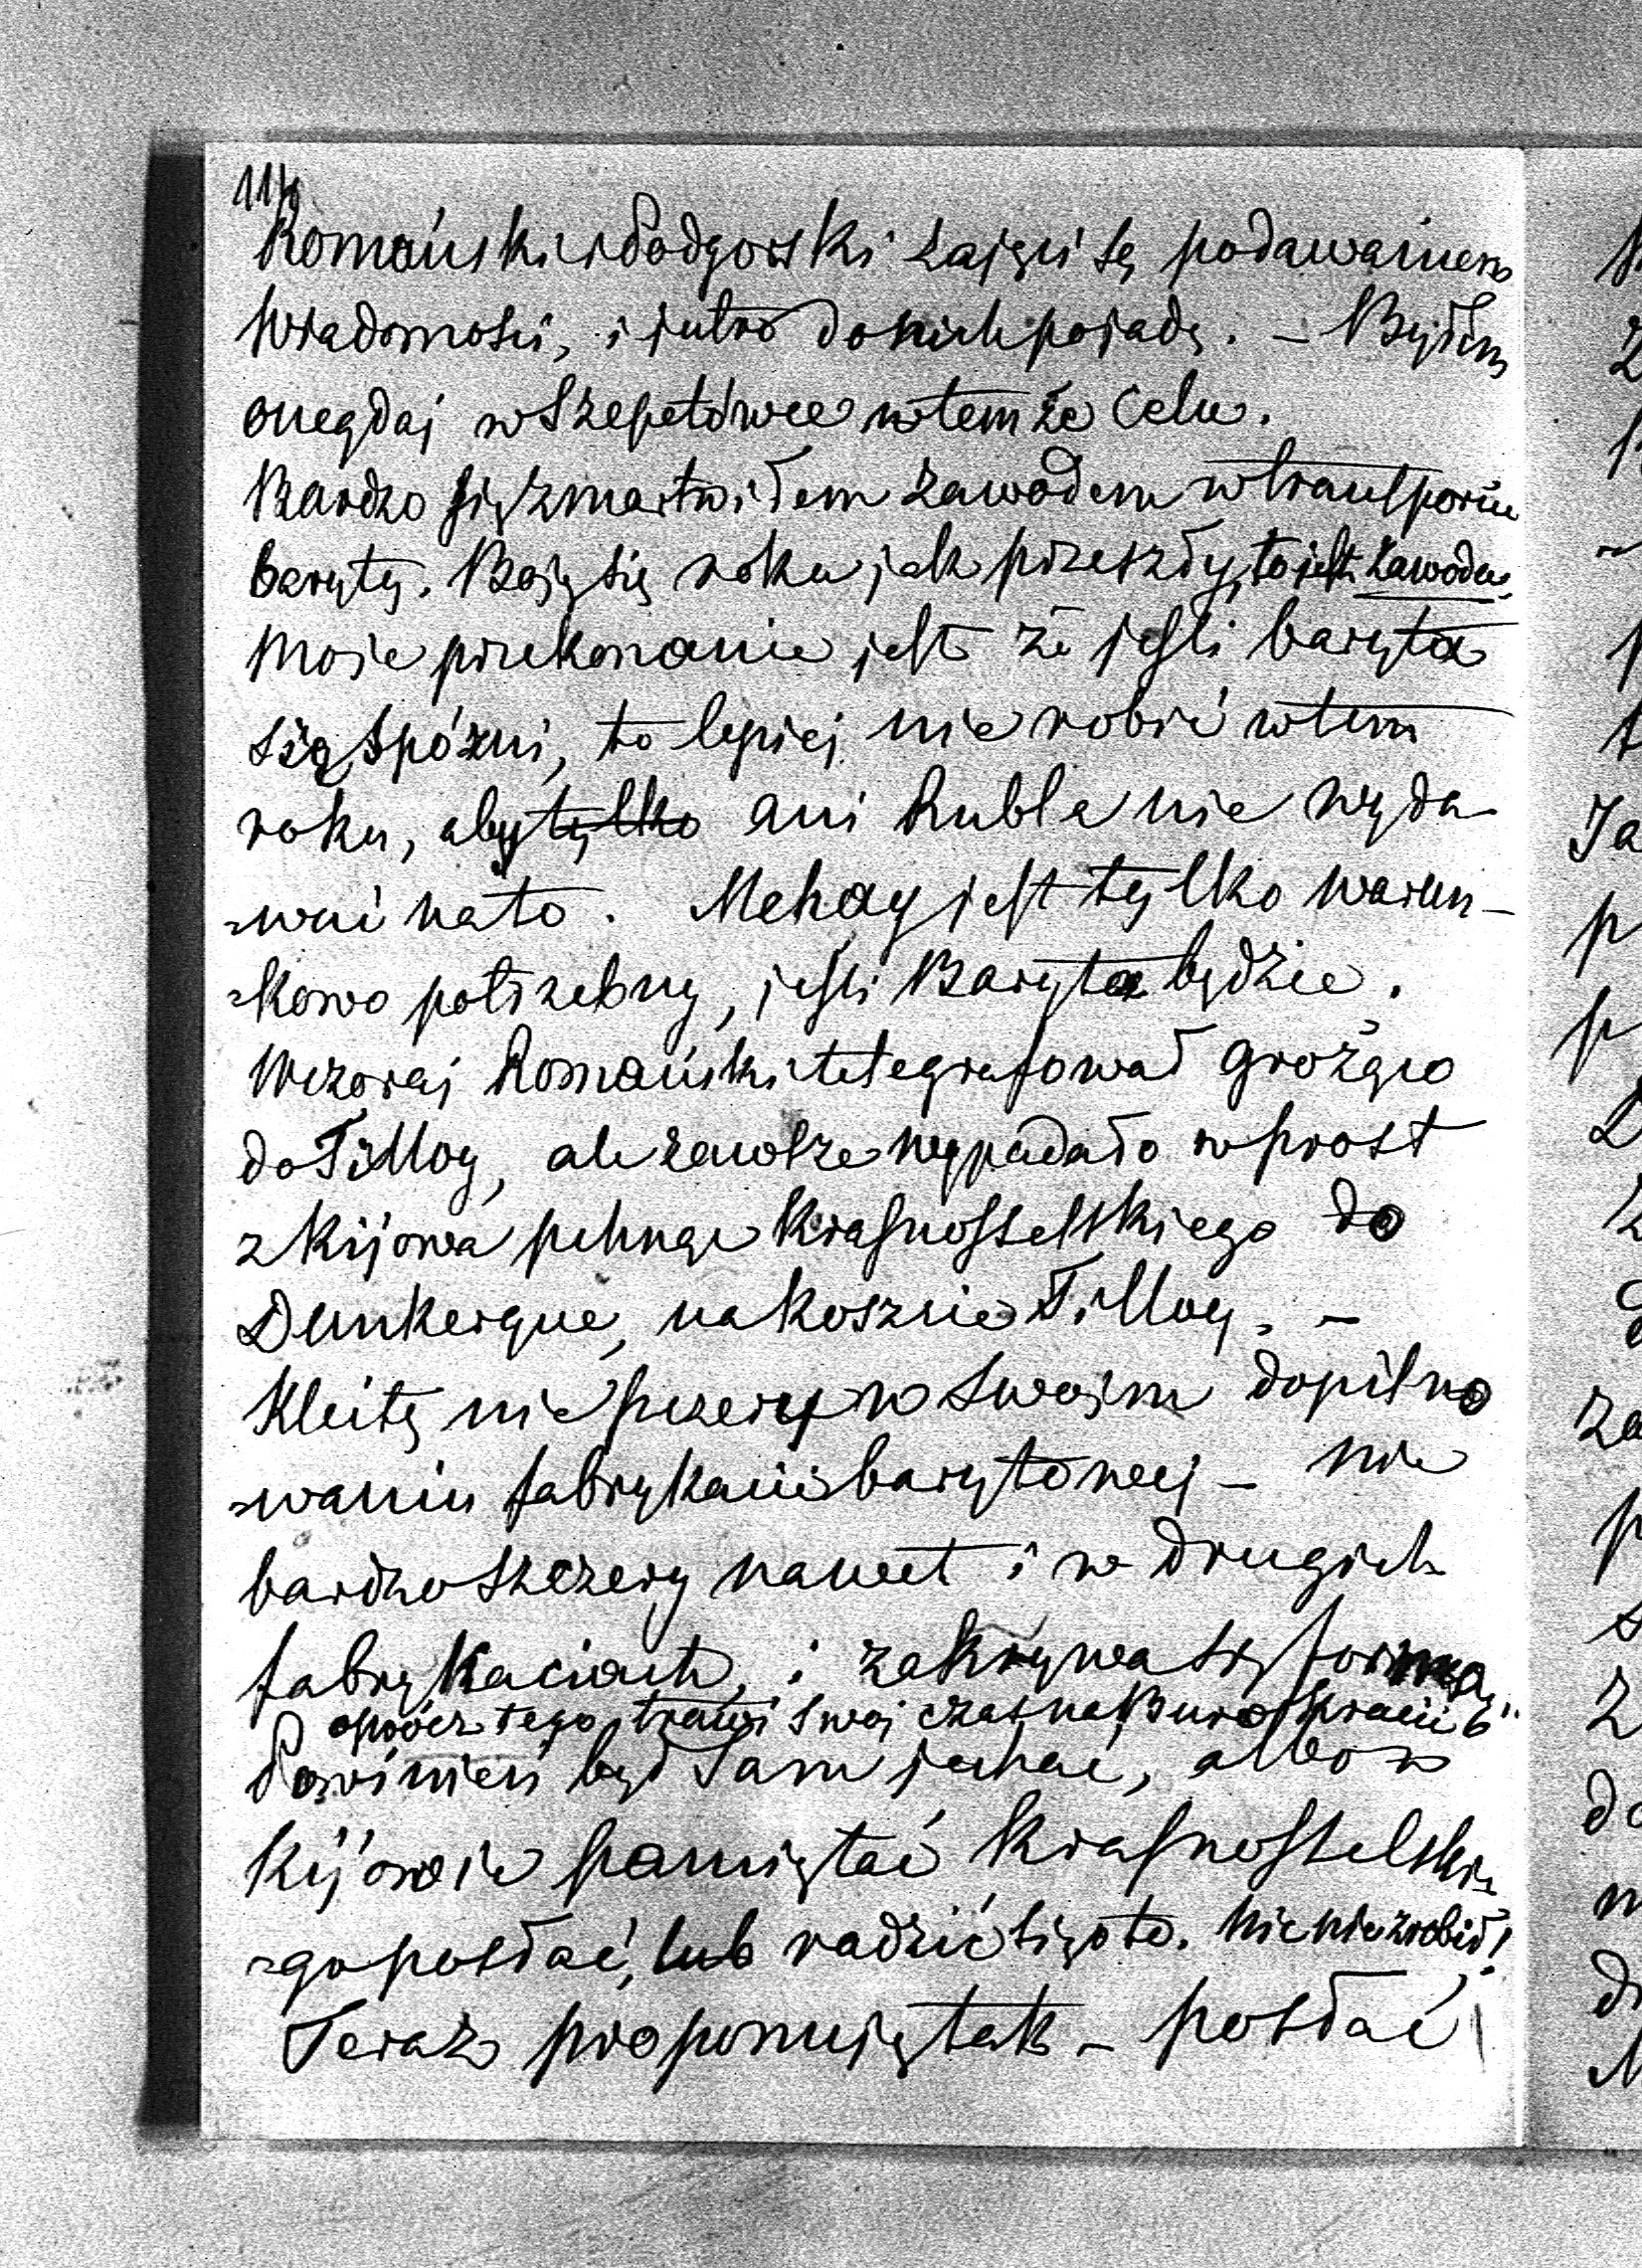 Romański i Podgorski zajęci są podawaniem
Wiadomości, i jutro do nich pojadę. – Byłem
onegdaj w Szepetówce w tem że Celu.
Bardzo się zmartwiłem zawodem w transporcie
baryty. Boję się roku jak przeszły, to jest zawodu.
Moje przekonanie jest że jeśli baryta
się spóźni, to lepiej nie robić w tem
roku, aby tylko ani Rubla nie wyda-
-wać na to. Mehay jest tylko warun-
-kowo potrzebny, jeśli Baryta będzie.
Wczoraj Romański telegrafował grożąco
do Tilloy, ale zawsze wypadało wprost
z Kijowa pchnąć Krasnosselskiego do
Dunkerque, na koszcie Tilloy. –
Kleitę nie szczery w swojem dopilno
-waniu fabrykacii barytowej – nie
bardzo szczery nawet i w drugich
fabrykaciach, i zakrywa się formą,
oprócz tego trawi swoj czas na Buro
Powinien był Sam jechać, albo w
Kijowie pamiętać Krasnosselskie
-go posłać, lub radzić się o to. Nic nie zrobił!
Teraz proponuję tak – posłać